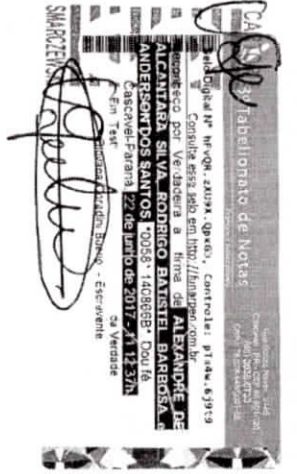 3º Tabelionato de Notas
Selo Digital Nº hFvQR.zXU9X.QpxGb, Controle: pTs4w.6j9t9
Consulte esse selo em http://funarpen.com.br
Reconheço por Verdadeira a firma de ALEXANDRE DE
ALCANTARA SILVA, RODRIGO BATISTEL BARBOSA e
ANDERSON DOS SANTOS. *0058*140896B* Dou fé
Cascavel-Paraná, 22 de junho de 2017 - 11:12:37h.
Em Test da Verdade
Bueno - Escrevente
SMARCZEWSKI